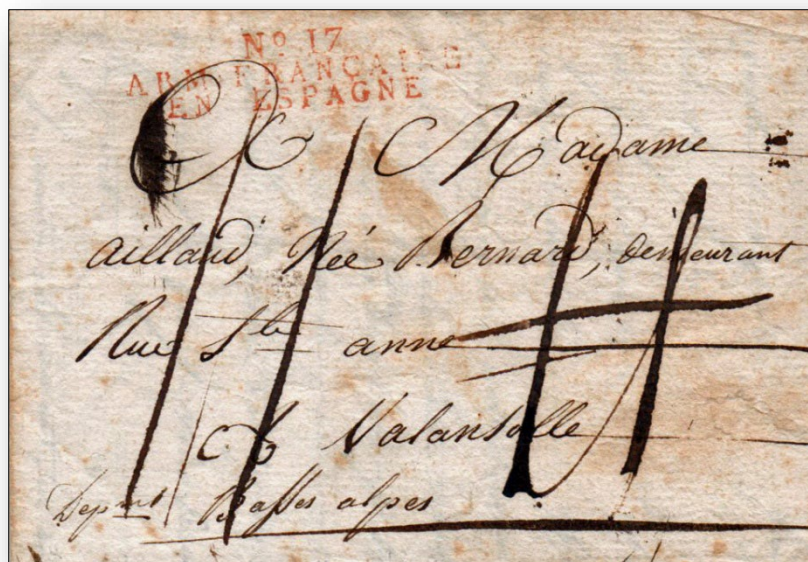 No. 17
ARM. FRANÇAISE
EN ESPAGNE
A Madame
aillaud, Née Bernard, demeurant
Rue Ste anne
A Valansolle
Depmt Basses alpes